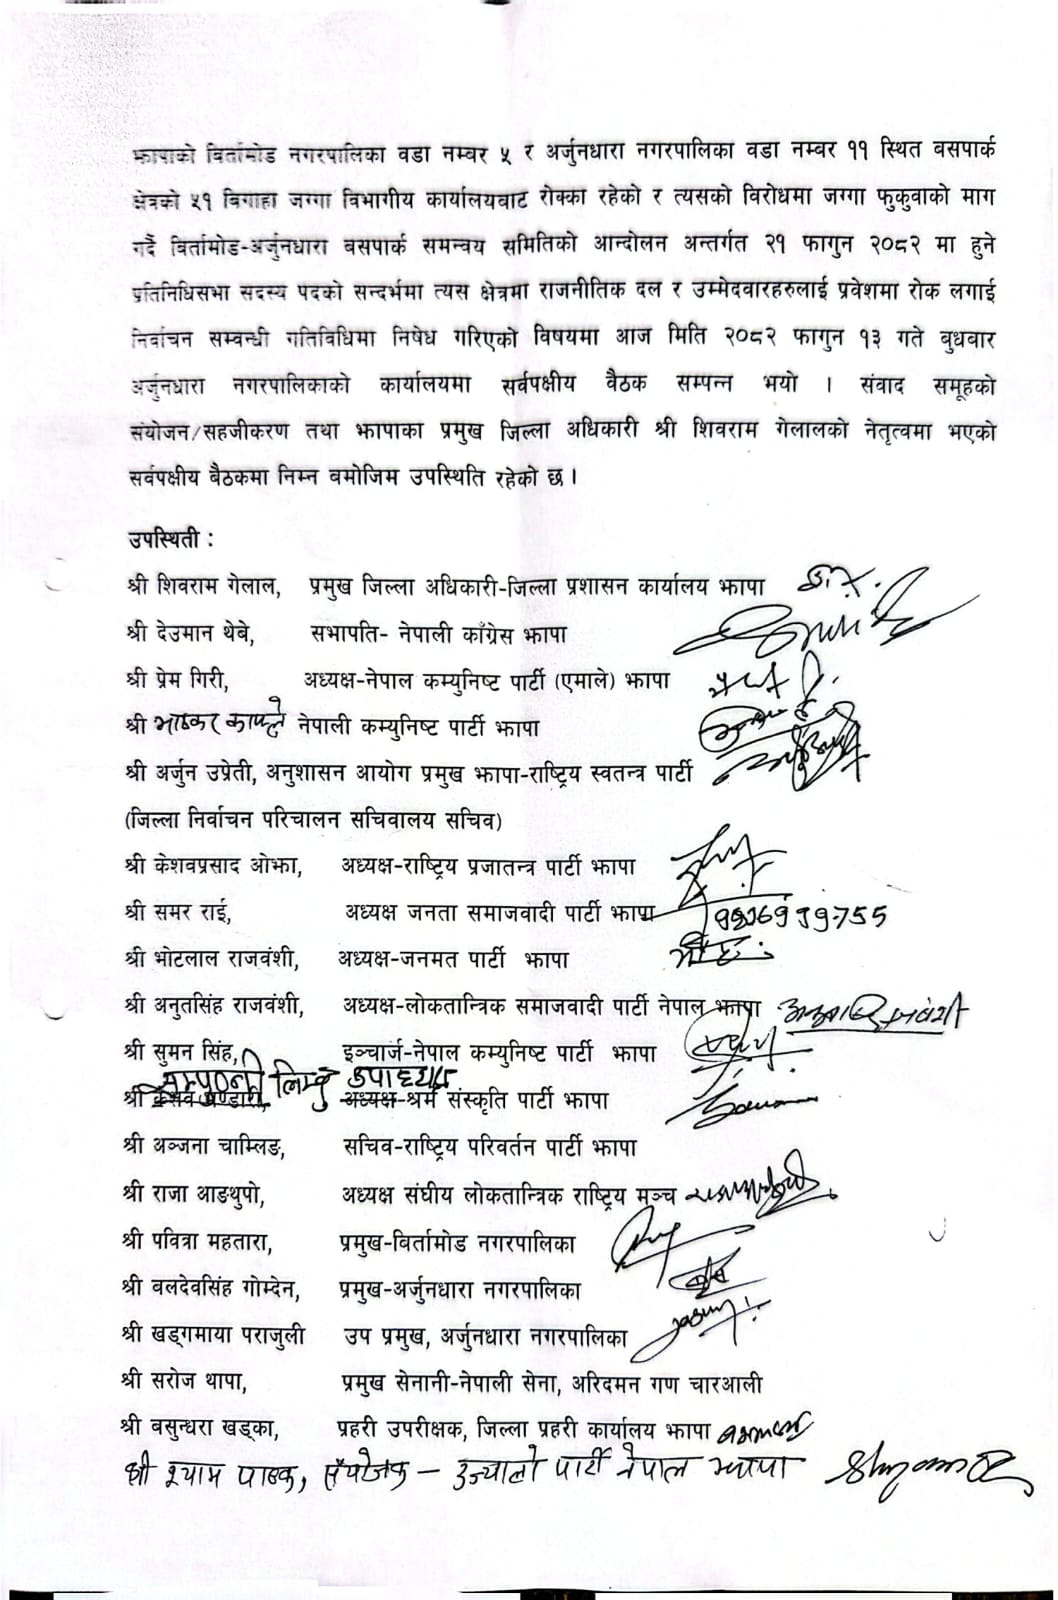 झापाको बिर्तामोड नगरपालिका वडा नम्बर ५ र अर्जुनधारा नगरपालिका वडा नम्बर ११ स्थित बसपार्क
क्षेत्रको ५१ बिगाहा जग्गा विभागीय कार्यालयबाट रोक्का रहेको र त्यसको विरोधमा जग्गा फुकुवाको माग
गर्दै बिर्तामोड-अर्जुनधारा बसपार्क समन्वय समितिको आन्दोलन अन्तर्गत २१ फागुन २०८२ मा हुने
प्रतिनिधिसभा सदस्य पदको सन्दर्भमा त्यस क्षेत्रमा राजनीतिक दल र उम्मेदवारहरुलाई प्रवेशमा रोक लगाई
निर्वाचन सम्बन्धी गतिविधिमा निषेध गरिएको विषयमा आज मिति २०८२ फागुन १३ गते बुधबार
अर्जुनधारा नगरपालिकाको कार्यालयमा सर्वपक्षीय बैठक सम्पन्न भयो । संवाद समूहको
संयोजन/सहजीकरण तथा झापाका प्रमुख जिल्ला अधिकारी श्री शिवराम गेलालको नेतृत्वमा भएको
सर्वपक्षीय बैठकमा निम्न बमोजिम उपस्थिति रहेको छ ।
उपस्थिती :
श्री शिवराम गेलाल, प्रमुख जिल्ला अधिकारी-जिल्ला प्रशासन कार्यालय झापा
श्री देउमान थेबे, सभापति- नेपाली काँग्रेस झापा
श्री प्रेम गिरी, अध्यक्ष-नेपाल कम्युनिष्ट पार्टी (एमाले) झापा
श्री भाष्कर काफ्ले नेपाली कम्युनिष्ट पार्टी झापा
श्री अर्जुन उप्रेती, अनुशासन आयोग प्रमुख झापा-राष्ट्रिय स्वतन्त्र पार्टी
(जिल्ला निर्वाचन परिचालन सचिवालय सचिव)
श्री केशवप्रसाद ओझा, अध्यक्ष-राष्ट्रिय प्रजातन्त्र पार्टी झापा
श्री समर राई, अध्यक्ष जनता समाजवादी पार्टी झापा
श्री भोटलाल राजवंशी, अध्यक्ष-जनमत पार्टी झापा
श्री अनुतसिंह राजवंशी, अध्यक्ष-लोकतान्त्रिक समाजवादी पार्टी नेपाल झापा
श्री सुमन सिंह, इञ्चार्ज-नेपाल कम्युनिष्ट पार्टी झापा
लिम्बु उपाध्यक्ष
श्री केशव भण्डारी, अध्यक्ष-श्रम संस्कृति पार्टी झापा
श्री अञ्जना चाम्लिङ, सचिव-राष्ट्रिय परिवर्तन पार्टी झापा
श्री राजा आङथुपो, अध्यक्ष संघीय लोकतान्त्रिक राष्ट्रिय मञ्च
श्री पवित्रा महतारा, प्रमुख-बिर्तामोड नगरपालिका
श्री बलदेवसिंह गोम्देन, प्रमुख-अर्जुनधारा नगरपालिका
श्री खड्गमाया पराजुली उप प्रमुख, अर्जुनधारा नगरपालिका
श्री सरोज थापा, प्रमुख सेनानी-नेपाली सेना, अरिदमन गण चारआली
श्री बसुन्धरा खड्का, प्रहरी उपरीक्षक, जिल्ला प्रहरी कार्यालय झापा
श्री श्याम पाठक, संयोजक - उज्यालो पार्टी नेपाल झापा